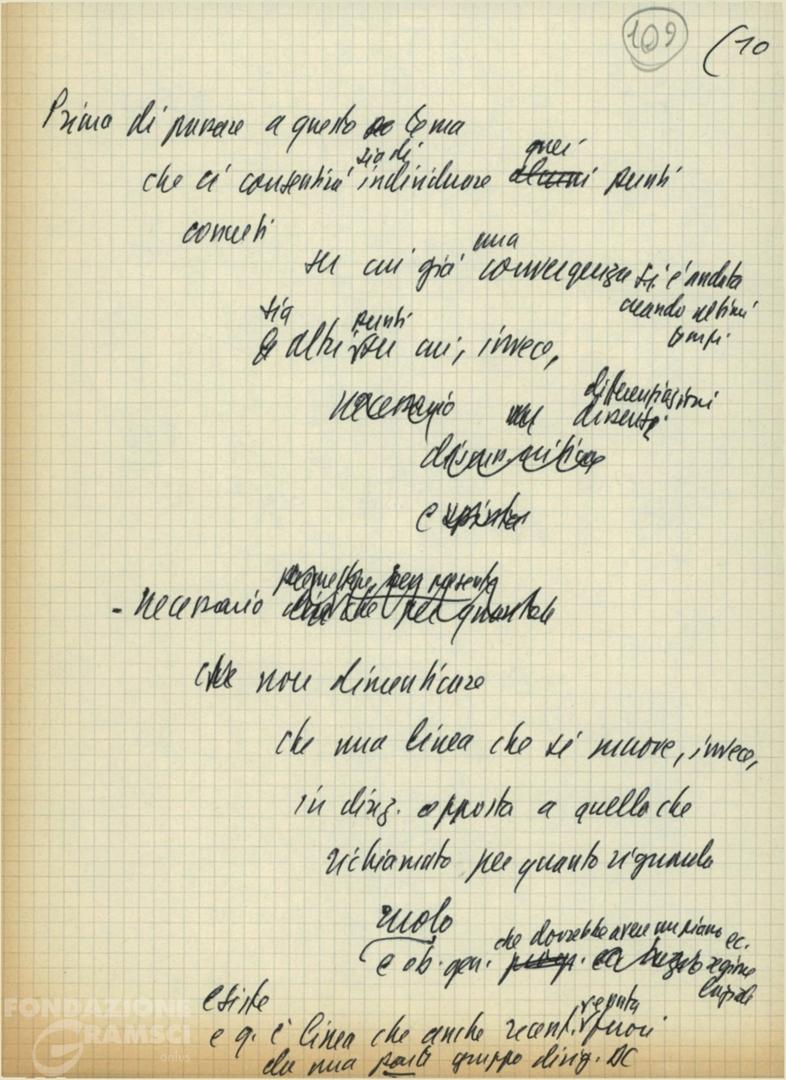 109 (10
Prima di passare a questo tema
sia di quei
che ci consentirà individuare alcuni punti
concreti
una
su cui già convergenza si è andata
creando ultimi
tempi.
sia punti
e altri su cui, invece,
differenziazioni
necessario dissensi
e
premettere, per
- necessario che per quanto
che non dimenticare
che una linea che si muove, invece,
in direz. opposta a quello che
richiamato per quanto riguarda
ruolo
che dovrebbe avere un piano ec.
e ob. gen. regione
Esiste
venuta
e q. è linea che anche recent. fuori
da una parte gruppo dirig. DC
FONDAZIONE
GRAMSCI
onlus